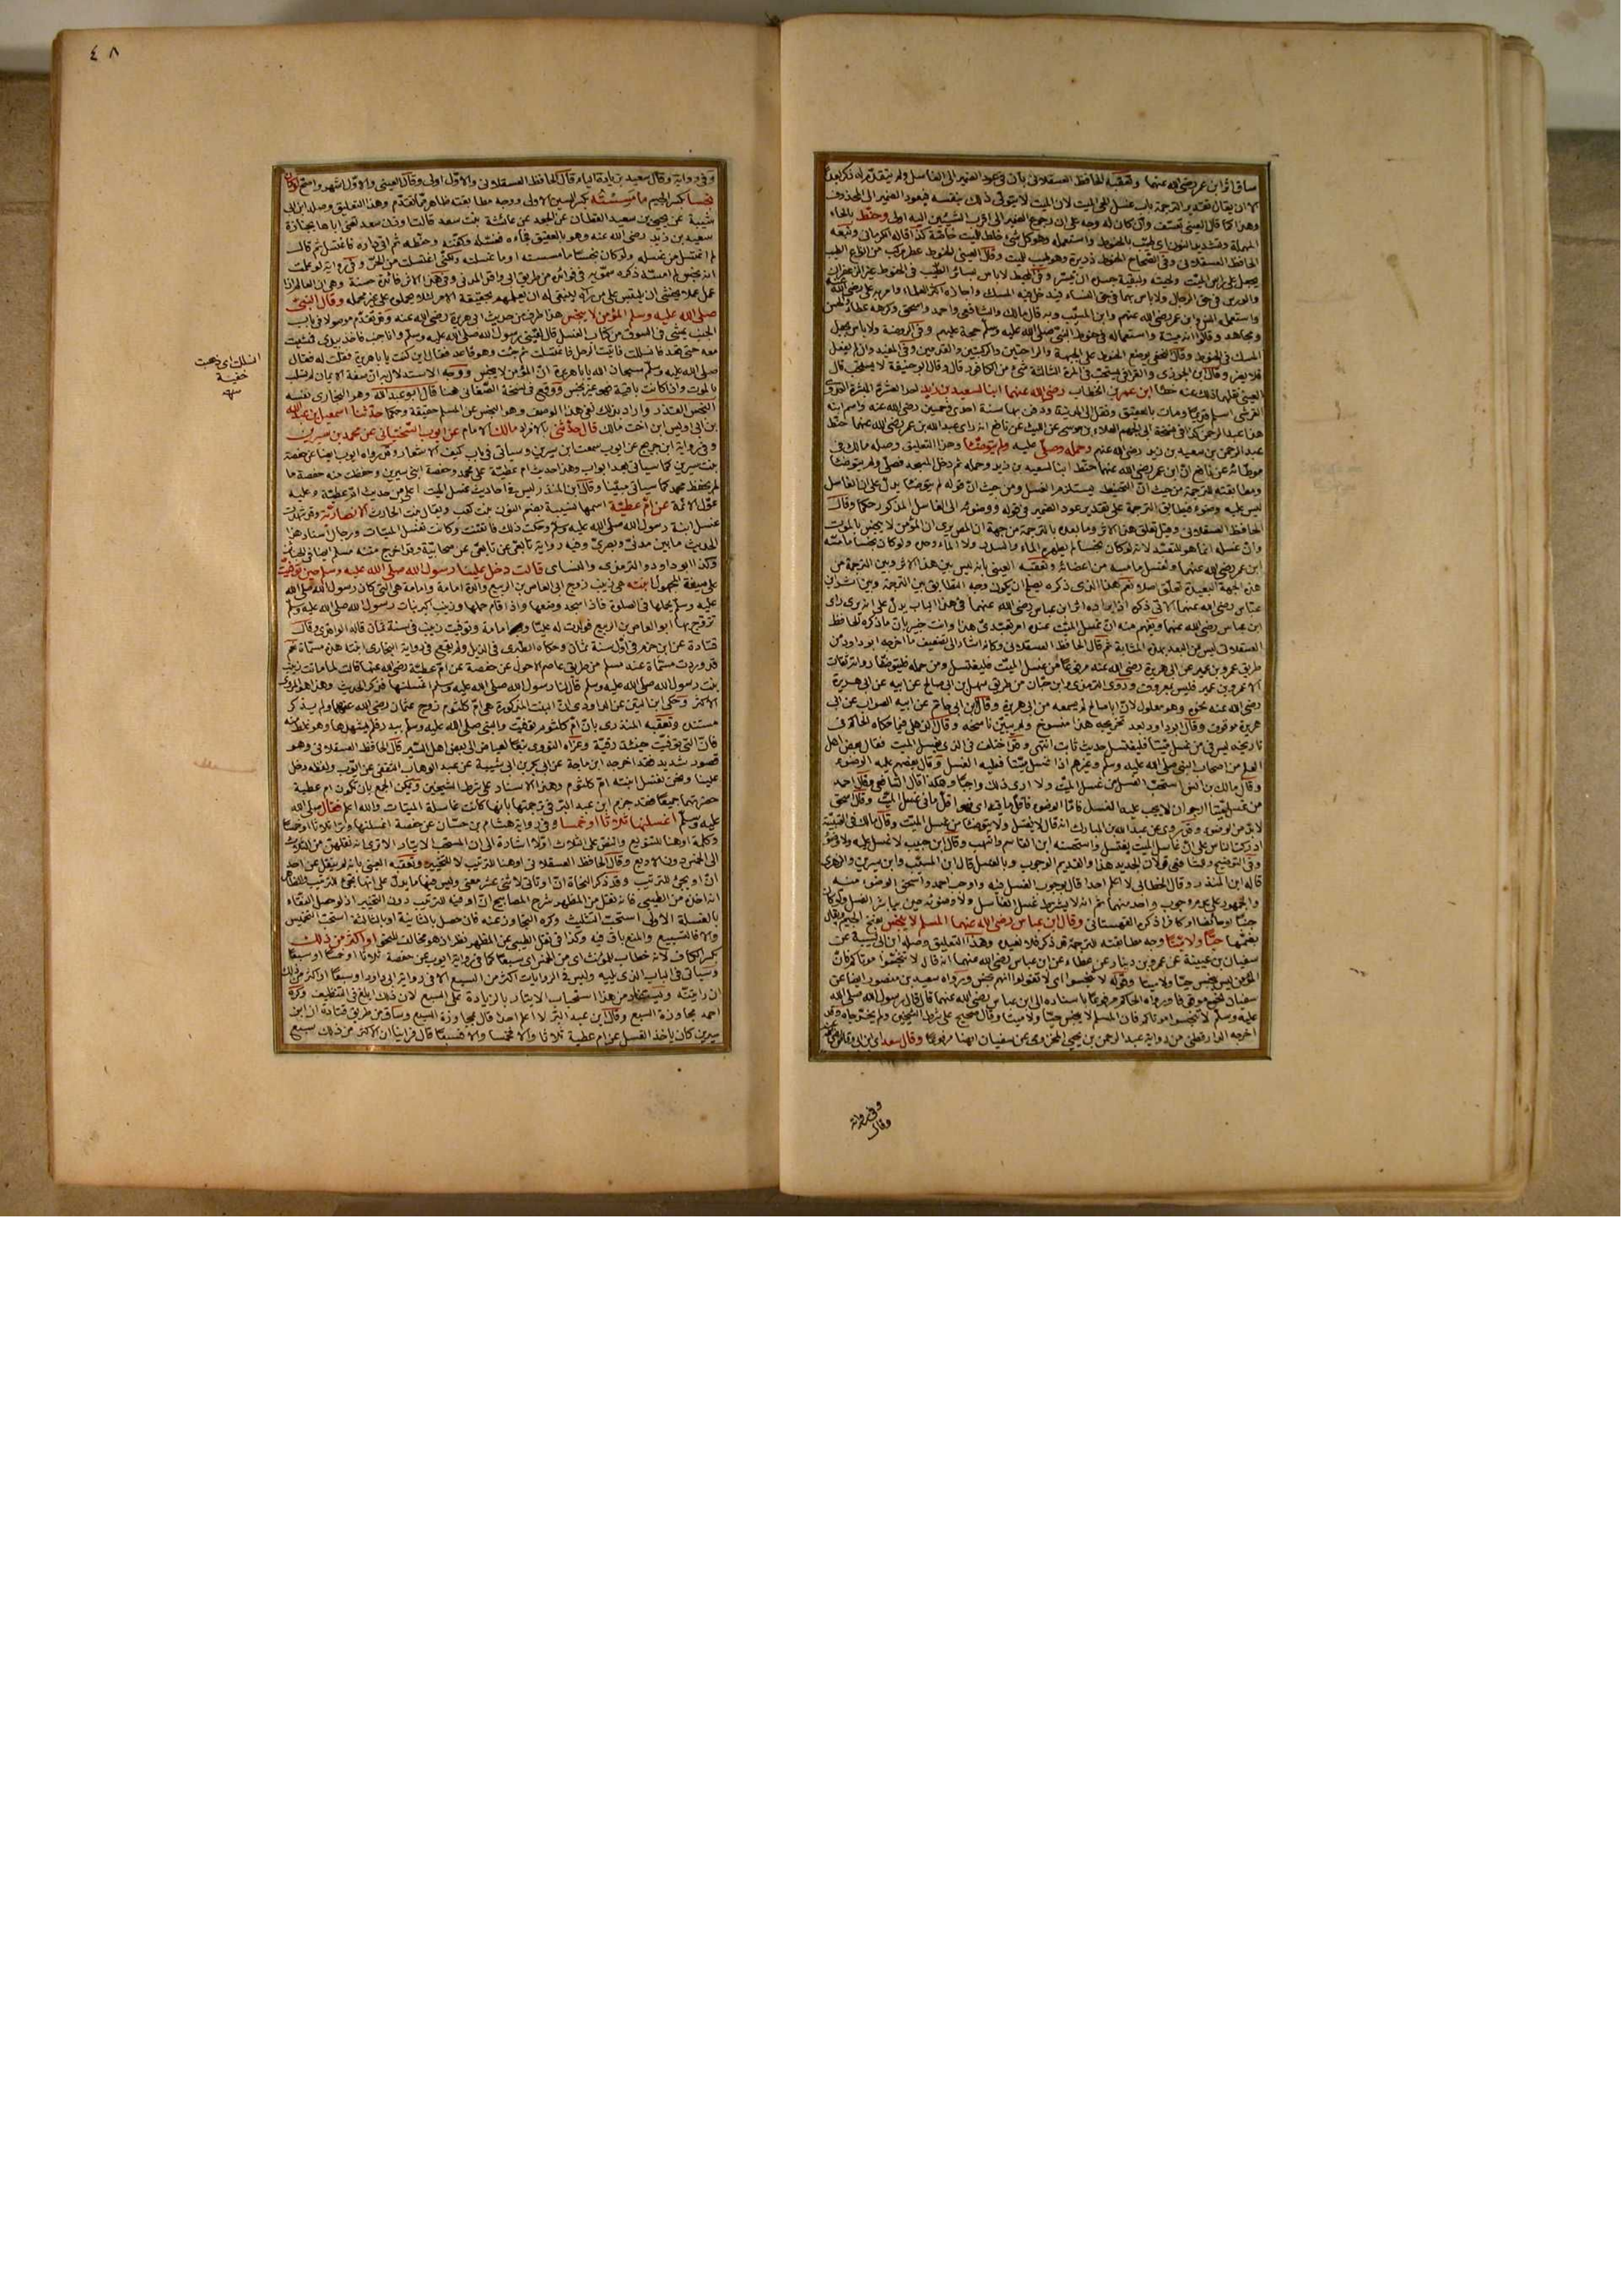 ساق اثر ابن عمر رضي الله عنهما وتعقبه الحافظ العسقلاني بأن في عود الضمير الى الغاسل ولم يتقدم له ذكر بعد
الا ان يقال تقدير الترجمة باب غسل الحي الميت لان الميت لا يتولى ذلك بنفسه فيعود الضمير الى المحذوف
وهذا كما قال العيني تعسف وان كان له وجه على ان رجوع الضمير الى اقرب الشيئين اليه اولى وحنط بالحاء
المهملة وتشديد النون اى طيب بالحنوط واستعمله وهو كل شئ خلط للميت خاصة كذا قاله الكرماني وتبعه
الحافظ العسقلاني وفى الصحاح الحنوط ذريرة وهو طيب للميت وقال العيني الحنوط عطر مركب من انواع الطيب
يجعل على راس الميت ولحيته ولبقية جسده ان تيسر وفى المحيط لا باس بسائر الطيب فى الحنوط غير الزعفران
والورس فى حق الرجال ولا باس بهما فى حق النساء فيدخل فيه المسك واجازه اكثر العلماء وامر به على رضي الله عنه
واستعمله انس وابن عمر رضي الله عنهم وابن المسيب وبه قال مالك والشافعى واحمد واسحق وكرهه عطاء والحسن
ومجاهد وقالوا انه ميتة واستعماله فى حنوط النبي صلى الله عليه وسلم حجة عليهم وفى الروضة ولا باس بجعل
المسك فى الحنوط وقال النخعى يوضع الحنوط على الجبهة والراحتين والركبتين والقدمين وفى المفيد وان لم يفعل
فلا يضر وقال ابن الجوزى والقرافى يستحب فى المرة الثالثة شئ من الكافور قال وقال ابو حنيفة لا يستحب قال
ابن عمر بن الخطاب رضي الله عنهما ابنا لسعيد بن زيد احد العشرة المبشرة
القرشى اسلم قديما ومات بالعقيق ونقل الى المدينة ودفن بها سنة احدى وخمسين رضي الله عنه واسم ابنه
هذا عبد الرحمن كذا فى نسخة ابى الجهم العلاء بن موسى عن الليث عن نافع انه راى عبد الله بن عمر رضي الله عنهما حنط
عبد الرحمن بن سعيد بن زيد رضي الله عنهم وحمله وصلى عليه ولم يتوضأ وهذا التعليق وصله مالك فى
موطائه عن نافع ان ابن عمر رضي الله عنهما حنط ابنا لسعيد بن زيد وحمله ثم دخل المسجد فصلى ولم يتوضأ
ومطابقته للترجمة من حيث ان التحنيط يستلزم الغسل ومن حيث ان قوله لم يتوضأ يدل على ان الغاسل
ليس عليه وضوء
وان غسله انما هو للتعبد لانه لو كان نجسا لم يطهره الماء والسدر ولا الماء وحده ولو كان نجسا ما مسه
ابن عمر رضي الله عنهما ولغسل ما مسه من اعضائه وتعقبه العيني بانه ليس بين هذا الاثر وبين الترجمة من
هذه الجهة البعيدة تعلق اصلا نعم هذا الذى ذكره يصلح ان يكون وجه التطابق بين الترجمة وبين اثر ابن
عباس رضي الله عنهما الآتى ذكره
العسقلانى ليس من البعد بهذه المثابة ثم قال الحافظ العسقلانى وكانه اشار الى تضعيف ما اخرجه ابو داود من
طريق عمرو بن عمير عن ابى هريرة رضي الله عنه مرفوعا من غسل الميت فليغتسل ومن حمله فليتوضأ رواته ثقات
الا عمرو بن عمير فليس بمعروف وروى الترمذى وابن حبان من طريق سهيل بن ابى صالح عن ابيه عن ابى هريرة
رضي الله عنه نحوه وهو معلول لان ابا صالح لم يسمعه من ابى هريرة وقال ابن ابى حاتم عن ابيه الصواب عن ابى
هريرة موقوف وقال ابو داود بعد تخريجه هذا منسوخ ولم يبين ناسخه وقال الذهلى فيما حكاه الحاكم فى
تاريخه ليس فى من غسل ميتا فليغتسل حديث ثابت انتهى وقد اختلف فى الذى يغسل الميت فقال بعض اهل
العلم من اصحاب النبي صلى الله عليه وسلم وغيرهم اذا غسل ميتا فعليه الغسل وقال بعضهم عليه الوضوء
وقال مالك بن انس استحب الغسل من غسل الميت ولا ارى ذلك واجبا وهكذا قال الشافعى وقال احمد
من غسل ميتا ارجو ان لا يجب عليه الغسل فاما الوضوء فاقل ما فيه وقال اسحق
لا بد من الوضوء وقد روى عن عبد الله بن المبارك انه قال لا يغتسل ولا يتوضأ من غسل الميت وقال مالك فى العتبية
ادركت الناس على ان غاسل الميت يغتسل واستحسنه ابن القاسم واشهب وقال ابن حبيب لا غسل عليه ولا وضوء
وفى التوضيح وللشافعى قولان الجديد هذا والقديم الوجوب وبالغسل قال ابن المسيب وابن سيرين والزهرى
قاله ابن المنذر وقال الخطابى لا اعلم احدا قال بوجوب الغسل فيه واوجب احمد واسحق الوضوء منه
وقال ابن عباس رضي الله عنهما المسلم لا ينجس بفتح الجيم
بضمها حيا ولا ميتا وجه مطابقته للترجمة قد ذكر فلا نعيده وهذا التعليق وصله ابن ابى شيبة عن
سفيان بن عيينة عن عمرو بن دينار عن عطاء عن ابن عباس رضي الله عنهما انه قال لا تنجسوا موتاكم فان
المؤمن ليس ينجس حيا ولا ميتا وقوله لا تنجسوا اى لا تقولوا انهم نجس ورواه سعيد بن منصور ايضا عن
سفيان نحوه موقوفا ورواه الحاكم مرفوعا باسناده الى ابن عباس رضي الله عنهما قال قال رسول الله صلى الله
عليه وسلم لا تنجسوا موتاكم فان المسلم لا ينجس حيا ولا ميتا وقال صحيح على شرط الشيخين ولم يخرجاه
اخرجه الدارقطنى من رواية عبد الرحمن بن يحيى المخزومى عن سفيان ايضا مرفوعا وقال سعد
وفى رواية
وقال
٤٨
وفى رواية وقال سعيد بزيادة الياء قال الحافظ العسقلانى والاول اولى وقال العينى والاول اشهر واصح لو كان
نجسا بكسر الجيم ما مسسته بكسر السين الاولى ووجه مطابقته ظاهر مما تقدم وهذا التعليق وصله ابن ابى
شيبة عن يحيى بن سعيد القطان عن الجعد عن عائشة بنت سعد قالت اوذن سعد تعنى اباها بجنازة
سعيد بن زيد رضي الله عنه وهو بالعقيق فجاءه فغسله وكفنه وحنطه ثم اتى داره فاغتسل ثم قال
لم اغتسل من غسله ولو كان نجسا ما مسسته او ما غسلته ولكنى اغتسلت من الحر وفى رواية لو علمت
انه نجس لم امسه
وقال النبى
صلى الله عليه وسلم المؤمن لا ينجس هذا طرف من حديث ابى هريرة رضي الله عنه وقد تقدم موصولا فى باب
الجنب يمشى فى السوق من كتاب الغسل قال لقينى رسول الله صلى الله عليه وسلم وانا جنب فاخذ بيدى فمشيت
معه حتى قعد فانسللت فاتيت الرحل فاغتسلت ثم جئت وهو قاعد فقال اين كنت يا ابا هريرة فقلت له فقال
صلى الله عليه وسلم سبحان الله يا ابا هريرة ان المؤمن لا ينجس ووجه الاستدلال به ان صفة الايمان لا تسلب
بالموت واذا كانت باقية فهو غير نجس ووقع فى نسخة الصغانى هنا قال ابو عبد الله وهو البخارى نفسه
النجس القذر واراد بذلك نفى هذا الوصف وهو النجس عن المسلم حقيقة وحكما حدثنا اسمعيل بن عبد الله
بن ابى اويس ابن اخت مالك قال حدثنى بالافراد مالك الامام عن ايوب السختيانى عن محمد بن سيرين
وفى رواية ابن جريج عن ايوب سمعت ابن سيرين وسياتى فى باب كيف الاشعار وقد رواه ايوب ايضا عن حفصة
بنت سيرين كما سياتى بعد ابواب وهذا حديث ام عطية على محمد وحفصة ابنى سيرين وحفظت منه حفصة ما
لم يحفظ محمد كما سياتى مبينا وقال ابن المنذر ليس فى احاديث غسل الميت اعلى من حديث ام عطية وعليه
عول الائمة عن ام عطية اسمها نسيبة بضم النون بنت كعب ويقال بنت الحارث الانصارية وقد شهدت
غسل ابنة رسول الله صلى الله عليه وسلم وحكت ذلك فاتقنت وكانت تغسل الميتات ورجال اسناد هذا
الحديث ما بين مدنى وبصرى وفيه رواية تابعى عن تابعى عن صحابية وقد اخرج متنه مسلم ايضا فى الجنائز
وكذا ابو داود والترمذى والنسائى قالت دخل علينا رسول الله صلى الله عليه وسلم حين توفيت
على صيغة المجهول ابنته هى زينب زوج ابى العاص بن الربيع والدة امامة وامامة هى التى كان رسول الله صلى الله
عليه وسلم يحملها فى الصلوة فاذا سجد وضعها واذا قام حملها وزينب اكبر بنات رسول الله صلى الله عليه وسلم
تزوج بها ابو العاص بن الربيع فولدت له عليا وامامة وتوفيت زينب فى سنة ثمان قاله الواقدى وقال
قتادة عن ابن حزم فى اول سنة ثمان وحكاه الطبرى فى الذيل ولم يقع فى رواية البخارى ابنته هذه مسماة نعم
قد وردت مسماة عند مسلم من طريق عاصم الاحول عن حفصة عن ام عطية رضي الله عنها قالت لما ماتت زينب
بنت رسول الله صلى الله عليه وسلم قال لنا رسول الله صلى الله عليه وسلم اغسلنها فذكر الحديث وهذا هو المروى
الاكثر وحكى ابن التين عن الداودى ان البنت المذكورة هى ام كلثوم زوج عثمان رضي الله عنهما ولم يذكر
مستنده وتعقبه المنذرى بان ام كلثوم توفيت والنبى صلى الله عليه وسلم ببدر فلم يشهدها وهو غلط منه
فان التى توفيت حينئذ رقية وعزاه النووى تبعا لعياض الى بعض اهل السير قال الحافظ العسقلانى وهو
قصور شديد فقد اخرجه ابن ماجة عن ابى بكر بن ابى شيبة عن عبد الوهاب الثقفى عن ايوب ولفظه دخل
علينا ونحن نغسل ابنته ام كلثوم وهذا الاسناد على شرط الشيخين ويمكن الجمع بان تكون ام عطية
حضرتهما جميعا فقد جزم ابن عبد البر فى ترجمتها بانها كانت غاسلة الميتات والله اعلم فقال صلى الله
عليه وسلم اغسلنها ثلاثا او خمسا وفى رواية هشام بن حسان عن حفصة اغسلنها وترا ثلاثا او خمسا
وكلمة او هنا للتنويع والنص على الثلاث اولا اشارة الى ان المستحب الايتار الا ترى انه نقلهن من الثلاث
الى الخمس دون الاربع وقال الحافظ العسقلانى او هنا للترتيب لا للتخيير وتعقبه العينى بانه لم ينقل عن احد
ان او تجئ للترتيب وقد ذكر النحاة ان او تاتى لاثنى عشر معنى وليس فيها ما يدل على انها تجئ للترتيب والظاهر
انه اخذه من الطيبى فانه نقل من المظهر شرح المصابيح ان او فيه للترتيب دون التخيير اذ لو حصل النقاء
بالغسلة الاولى استحب التثليث وكره التجاوز عنه فان حصل بالثانية او بالثالثة استحب التخميس
والا فالتسبيع والمنع باق فيه وكذا فى نقل الطيبى عن المظهر نظر اذ هو مخالف للنحو او اكثر من ذلك
بكسر الكاف لانه خطاب للمؤنث اى من الخمس اى سبعا كما فى رواية ايوب عن حفصة ثلاثا او خمسا او سبعا
وسياتى فى الباب الذى يليه وليس فى الروايات اكثر من السبع الا فى رواية ابى داود او سبعا او اكثر من ذلك
ان رايتنه ويستفاد من هذا استحباب الايتار بالزيادة على السبع لان ذلك ابلغ فى التنظيف وكره
احمد مجاوزة السبع وقال ابن عبد البر لا اعلم احدا قال بمجاوزة السبع وساق من طريق قتادة ان ابن
سيرين كان ياخذ الغسل عن ام عطية ثلاثا والا فخمسا والا فسبعا قال فراينا ان الاكثر من ذلك سبع
انسللت اى ذهبت
خفية